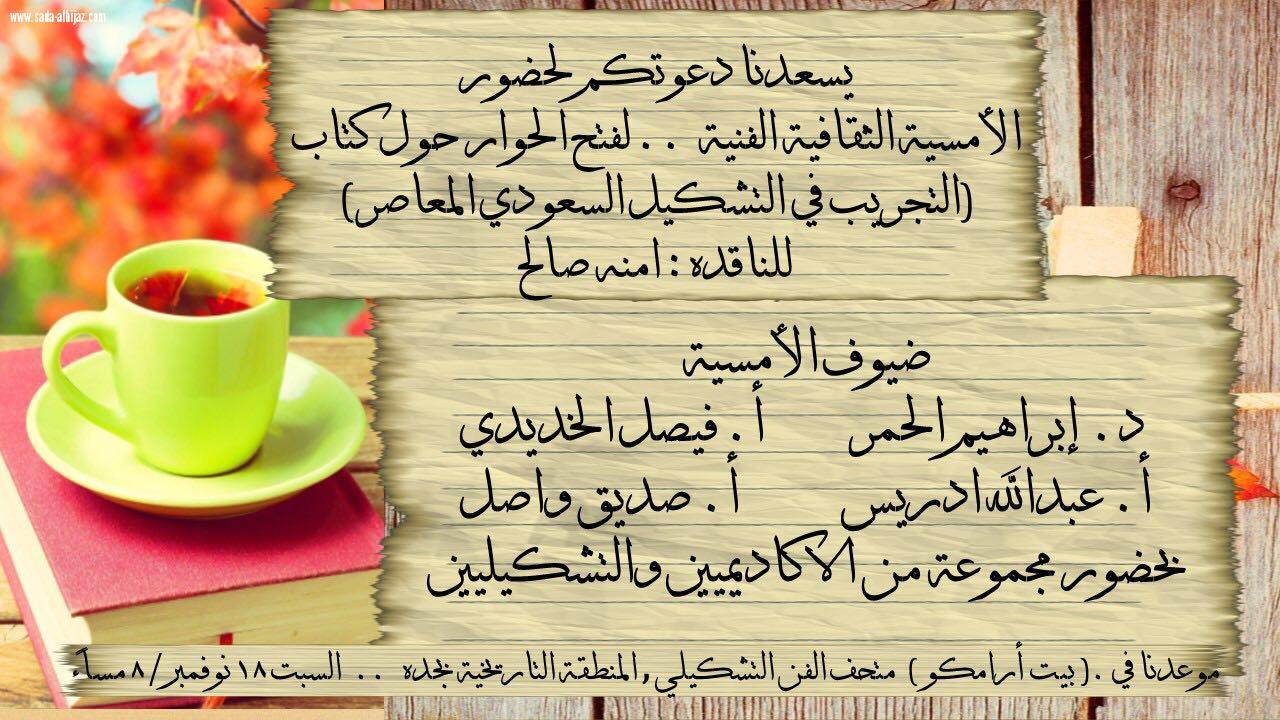 www.sada-alhijaz.com
يسعدنا دعوتكم لحضور
الأمسية الثقافية الفنية . . لفتح الحوار حول كتاب
(التجريب في التشكيل السعودي المعاصر)
للناقده : امنه صالح
ضيوف الأمسية
د . إبراهيم الحمر أ . فيصل الخديدي
أ . عبدالله ادريس أ . صديق واصل
بحضور مجموعة من الاكاديميين والتشكيليين
موعدنا في . ( بيت أرامكو ) متحف الفن التشكيلي , المنطقة التاريخية بجده . . السبت ١٨ نوفمبر / ٨ مساءً